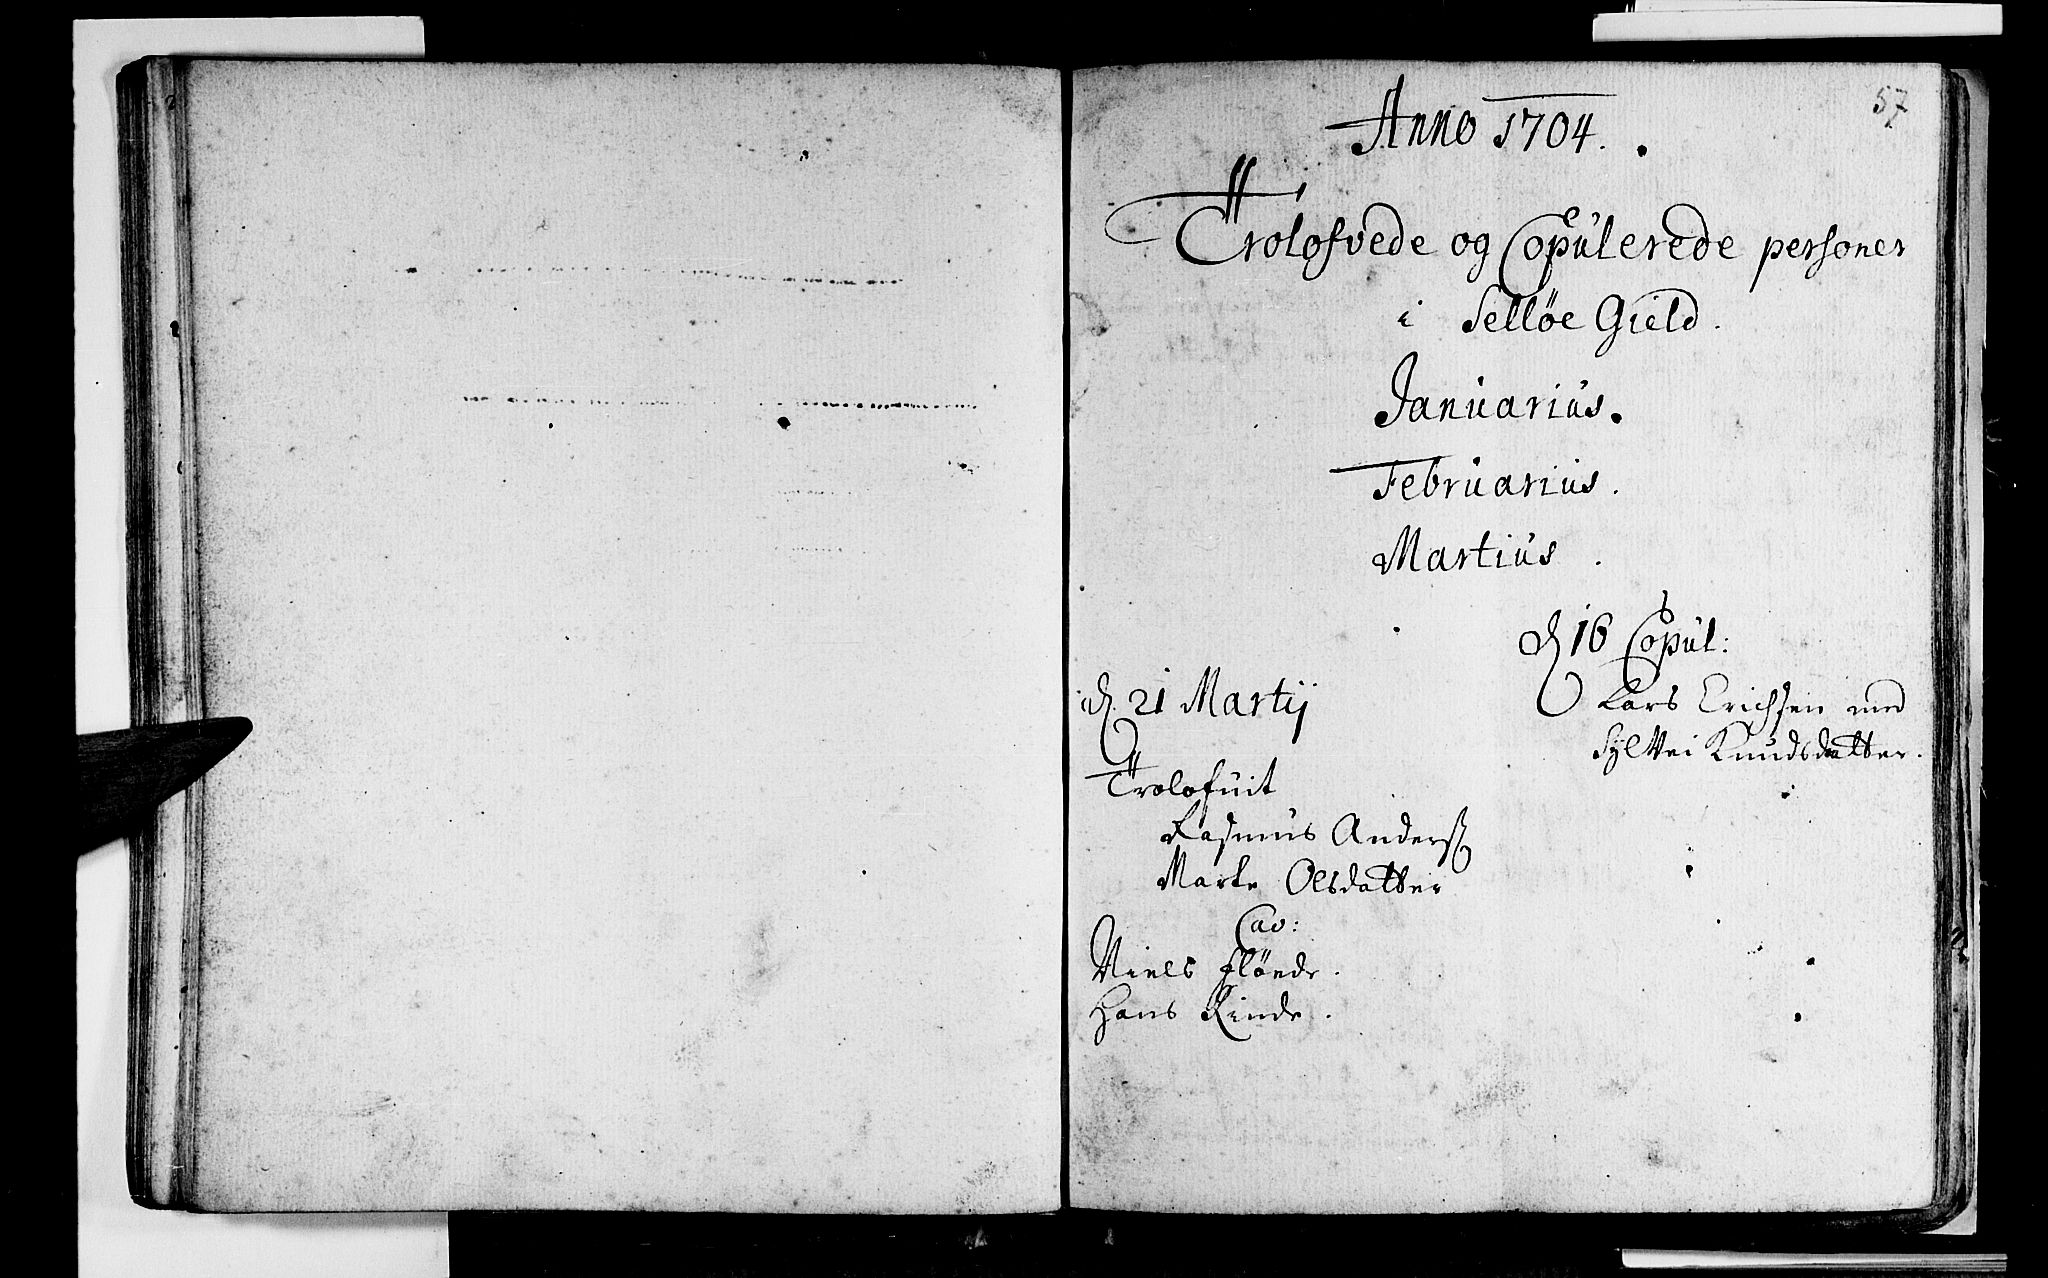 57
Anno 1704.
Trolofvede og Copulerede personer
i Selløe Gield.
Januarius.
Februarius.
Martius.
d. 16 Copul:
Lars Erichsen med
Sylvei Knudsdatter.
d. 21 Martij
Trolofuit
Rasmus Anders
Marte Olsdatter
Cav:
Niels Fløede.
Hans Rinde.